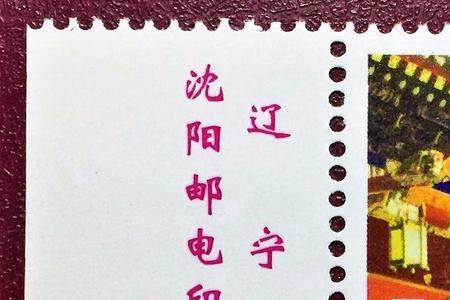 辽宁
沈阳邮电